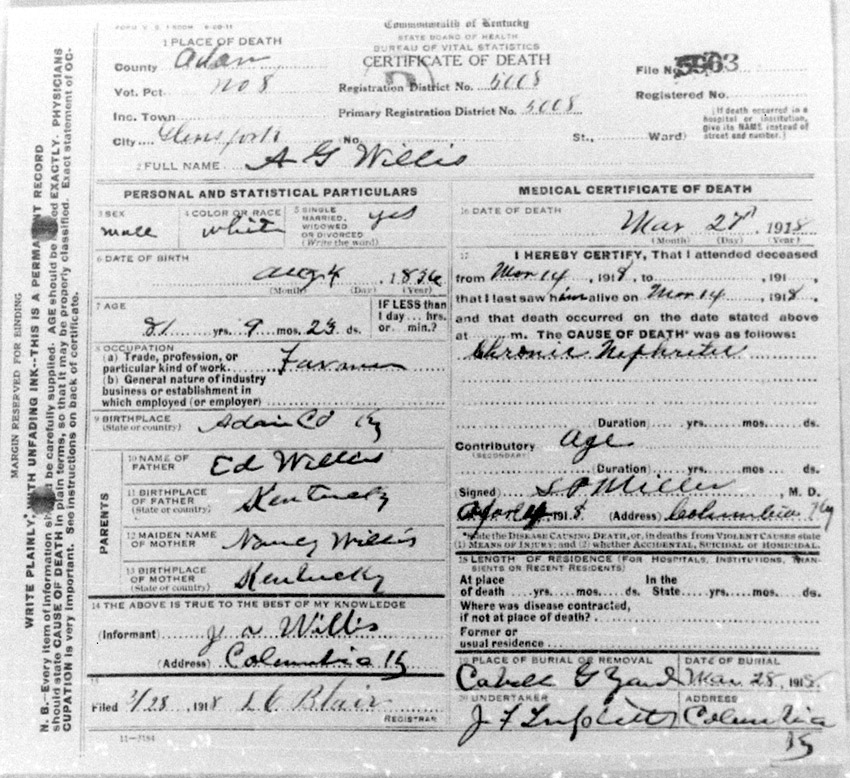 Commonwealth of Kentucky
STATE BOARD OF HEALTH
BUREAU OF VITAL STATISTICS
CERTIFICATE OF DEATH
1 PLACE OF DEATH
County Adair
Vot. Pct. No 8
Inc. Town
City
No. St., Ward)
Registration District No. 5008
Primary Registration District No. 5008
File No. 5963
Registered No.
(If death occurred in a hospital or institution, give its NAME instead of street and number.)
2 FULL NAME A G Willis
PERSONAL AND STATISTICAL PARTICULARS
3 SEX
male
4 COLOR OR RACE
white
5 SINGLE MARRIED, WIDOWED OR DIVORCED (Write the word)
yes
6 DATE OF BIRTH
Aug 4, 1836
(Month) (Day) (Year)
7 AGE
81 yrs. 9 mos. 23 ds.
IF LESS than 1 day... hrs. or... min.?
8 OCCUPATION
(a) Trade, profession, or particular kind of work. Farmer
(b) General nature of industry business or establishment in which employed (or employer)
9 BIRTHPLACE
(State or country) Adair Co Ky
PARENTS
10 NAME OF FATHER Ed Willis
11 BIRTHPLACE OF FATHER (State or country) Kentucky
12 MAIDEN NAME OF MOTHER Nancy Willis
13 BIRTHPLACE OF MOTHER (State or country) Kentucky
14 THE ABOVE IS TRUE TO THE BEST OF MY KNOWLEDGE
(Informant) Willis
(Address) Columbia Ky
Filed 3/28, 1918 Blair
REGISTRAR
11-3184
MEDICAL CERTIFICATE OF DEATH
16 DATE OF DEATH
Mar 27, 1918
(Month) (Day) (Year)
17 I HEREBY CERTIFY, That I attended deceased
from Mar 14, 1918, to , 191
that I last saw him alive on Mar 14, 1918,
and that death occurred on the date stated above
at m. The CAUSE OF DEATH* was as follows:
Chronic Nephritis
(Duration) yrs. mos. ds.
Contributory Age
(SECONDARY)
(Duration) yrs. mos. ds.
Signed Miller, M. D.
1918 (Address) Columbia Ky
*State the DISEASE CAUSING DEATH, or, in deaths from VIOLENT CAUSES state (1) MEANS OF INJURY; and (2) whether ACCIDENTAL, SUICIDAL or HOMICIDAL.
18 LENGTH OF RESIDENCE (FOR HOSPITALS, INSTITUTIONS, TRANSIENTS OR RECENT RESIDENTS)
At place of death yrs. mos. ds. In the State yrs. mos. ds.
Where was disease contracted, if not at place of death?
Former or usual residence
19 PLACE OF BURIAL OR REMOVAL
Cabell G Yard
DATE OF BURIAL
Mar 28, 1918
20 UNDERTAKER
J F Triplett
ADDRESS
Columbia
Ky
MARGIN RESERVED FOR BINDING
WRITE PLAINLY, WITH UNFADING INK--THIS IS A PERMANENT RECORD
N. B.--Every item of information should be carefully supplied. AGE should be stated EXACTLY. PHYSICIANS
should state CAUSE OF DEATH in plain terms, so that it may be properly classified. Exact statement of OC-
CUPATION is very important. See instructions on back of certificate.